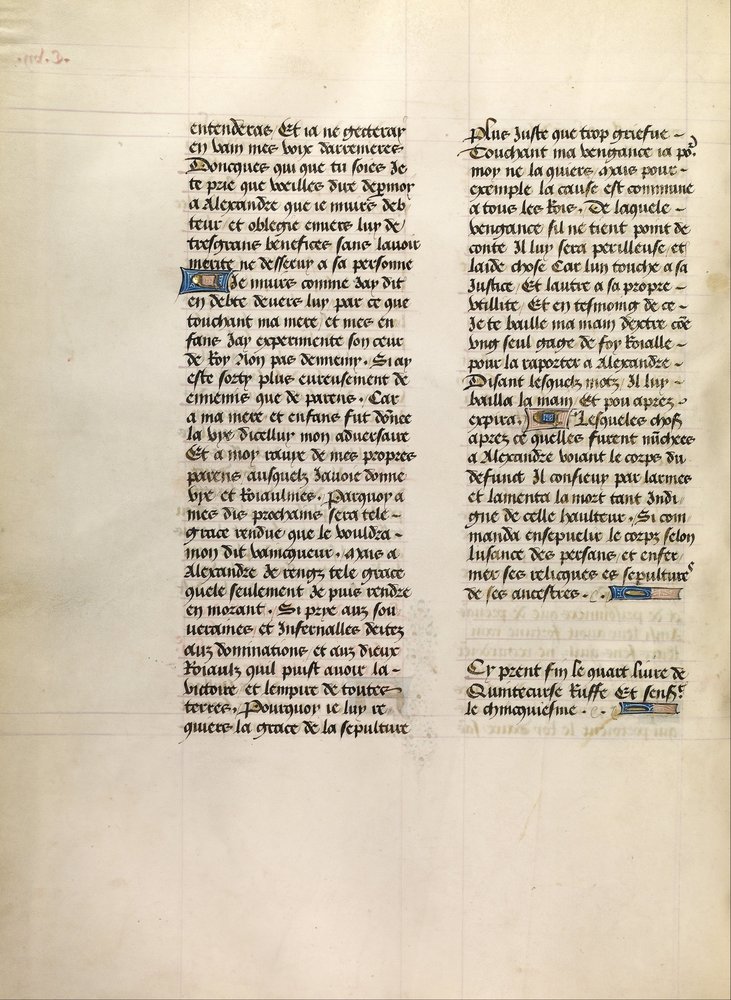 entenderas Et ia ne gecteray
en vain mes voix darrenieres
Doncques qui que tu soies Je
te prie que vueilles dire de p moy
a Alexandre que ie muirs deb
teur et oblegie enuers luy de
tresgrans benefices sans lauoir
merite ne desseruy a sa personne
Je muirs comme Jay dit
en debte deuers luy par ce que
touchant ma mere et mes en
fans Jay experimente son ceur
de Roy Non pas dennemy. Si ay
este sorty plus eureusement de
ennemis que de parens. Car
a ma mere et enfans fut donee
la vye dicelluy mon aduersaire
Et a moy rauie de mes propres
parens ausquelz Jauoie donne
vye et Roiaulmes. Parquoy a
mes dis prochains sera tele
grace rendue que le vouldra
mon dit vaincqueur. Mais a
Alexandre Je rengz tele grace
quele seulement Je puis rendre
en morant. Si prye aux sou
ueraines et Infernalles deitez
aux dominations et aux dieux
Roiaulx quil puist auoir la
victoire et lempire de toutes
terres. Pourquoy ie luy re
quiers la grace de la sepulture
Plus Juste que trop griefue
Touchant ma vengance ia po
moy ne la quiers Mais pour
exemple la cause est commune
a tous les Rois. De laquele
vengance sil ne tient point de
conte Il luy sera perilleuse et
laide chose Car lun touche a sa
Justice Et lautre a sa propre
vtillite Et en tesmoing de ce
Je te baille ma main dextre coe
vng seul gage de foy Roialle
pour la raporter a Alexandre
Disant lesquelz motz Il luy
bailla la main Et pou aprez
expira. Lesqueles chos
aprez ce quelles furent nuchees
a Alexandre voiant le corps du
defunct Il consieuy par larmes
et lamenta la mort tant Indi
gne de celle haulteur. Si com
manda enseuelir le corpz selon
lusance des persans et enfer
mer ses relicques es sepulture
de ses ancestres.
Cy prent fin le quart liure de
Quintecurse Ruffe Et sensr
le chincquiesme.